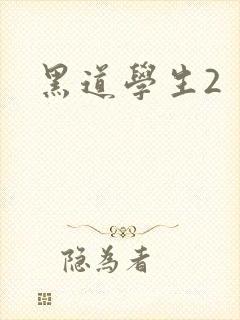 黑道學生2
隐为者